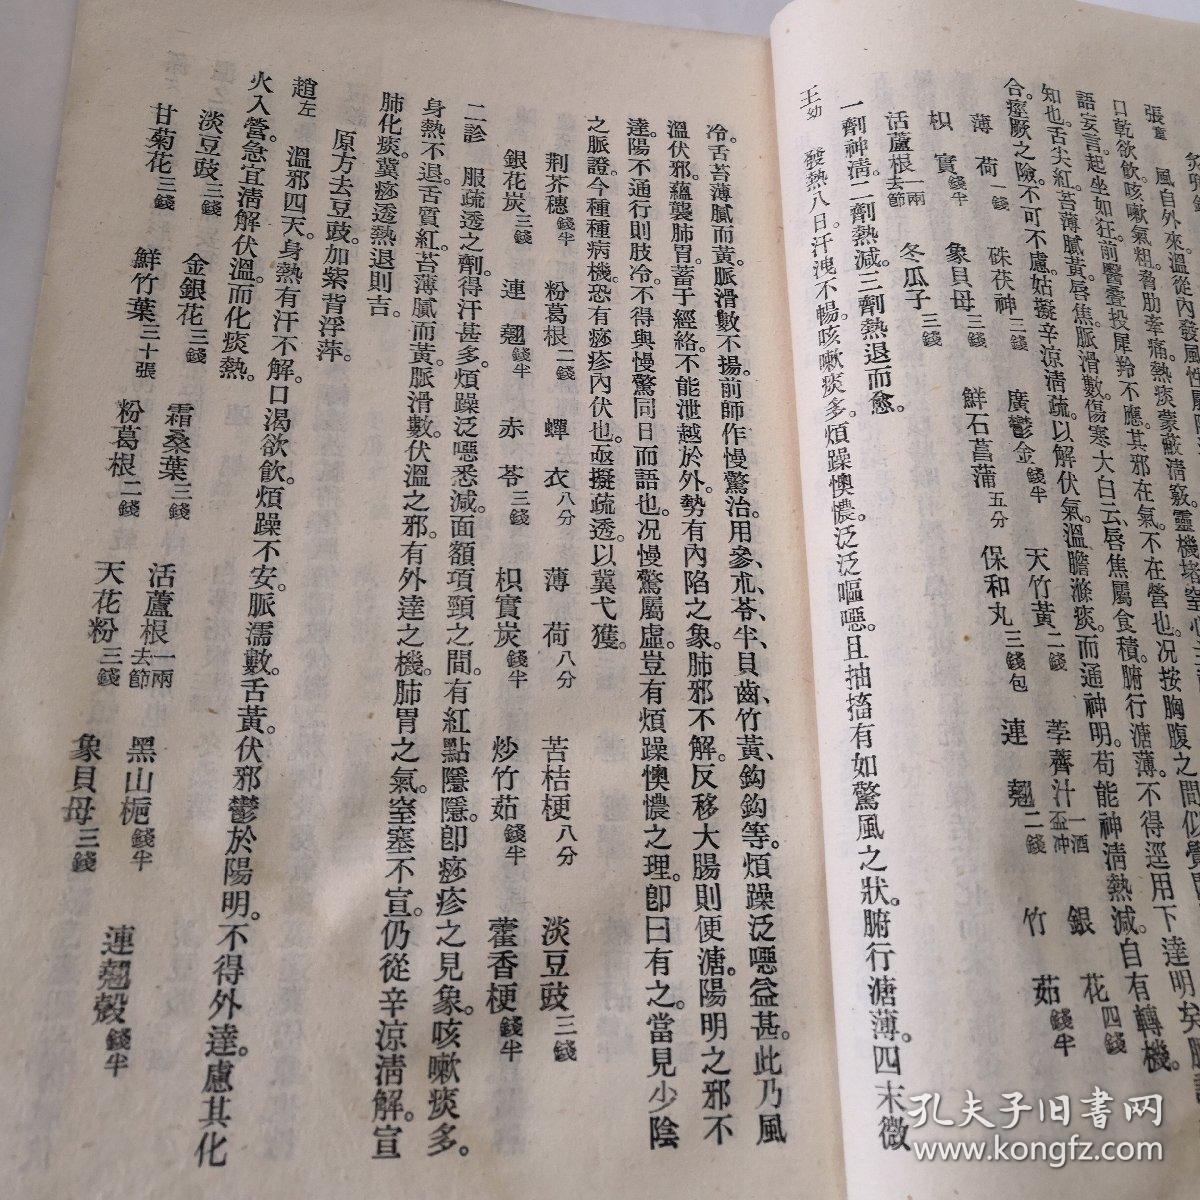 張童
風自外來溫從內發風性屬陽
口乾欲飲咳嗽氣粗脅肋牽痛熱痰蒙蔽清竅靈機堵窒
語妄言起坐如狂前醫疊投犀羚不應其邪在氣不在營也况按胸腹之間似覺
知也舌尖紅苔薄膩黃唇焦脈滑數傷寒大白云唇焦屬食積腑行溏薄不得逕用下達明矣
合痙厥之險不可不慮姑擬辛涼清疏以解伏氣溫膽滌痰而通神明苟能神清熱減自有轉機。
薄荷一錢　硃茯神三錢　廣鬱金錢半　天竹黃二錢　荸薺汁一酒盃冲　銀花四錢
枳實錢半　象貝母三錢　鮮石菖蒲五分　保和丸三錢包　連翹二錢　竹茹錢半
活蘆根一兩去節　冬瓜子三錢
一劑神淸。二劑熱減。三劑熱退而愈。
王幼　發熱八日。汗洩不暢。咳嗽痰多。煩躁懊憹。泛泛嘔噁。且抽搐有如驚風之狀。腑行溏薄。四末微
冷。舌苔薄膩而黃。脈滑數不揚。前師作慢驚治。用參、朮、苓、半、貝、齒、竹黃、鈎鈎等。煩躁泛噁益甚。此乃風
溫伏邪。蘊襲肺胃。蓄于經絡。不能泄越於外。勢有內陷之象。肺邪不解。反移大腸則便溏。陽明之邪不
達。陽不通行則肢冷。不得與慢驚同日而語也。况慢驚屬虛。豈有煩躁懊憹之理。卽曰有之。當見少陰
之脈證。今種種病機。恐有痧疹內伏也。亟擬疏透。以冀弋獲。
荆芥穗錢半　粉葛根二錢　蟬衣八分　薄荷八分　苦桔梗八分　淡豆豉三錢
銀花炭三錢　連翹錢半　赤苓三錢　枳實炭錢半　炒竹茹錢半　藿香梗錢半
二診　服疏透之劑。得汗甚多。煩躁泛噁悉減。面額項頸之間。有紅點隱隱。卽痧疹之見象。咳嗽痰多。
身熱不退。舌質紅。苔薄膩而黃。脈滑數。伏溫之邪。有外達之機。肺胃之氣。窒塞不宣。仍從辛涼淸解。宣
肺化痰。冀痧透熱退則吉。
原方去豆豉。加紫背浮萍。
趙左　溫邪四天。身熱有汗不解。口渴欲飲。煩躁不安。脈濡數。舌黃。伏邪鬱於陽明。不得外達。慮其化
火入營。急宜淸解伏溫。而化痰熱。
淡豆豉三錢　金銀花三錢　霜桑葉三錢　活蘆根一兩去節　黑山梔錢半　連翹殼錢半
甘菊花三錢　鮮竹葉三十張　粉葛根二錢　天花粉三錢　象貝母三錢
孔夫子旧書网
www.kongfz.com